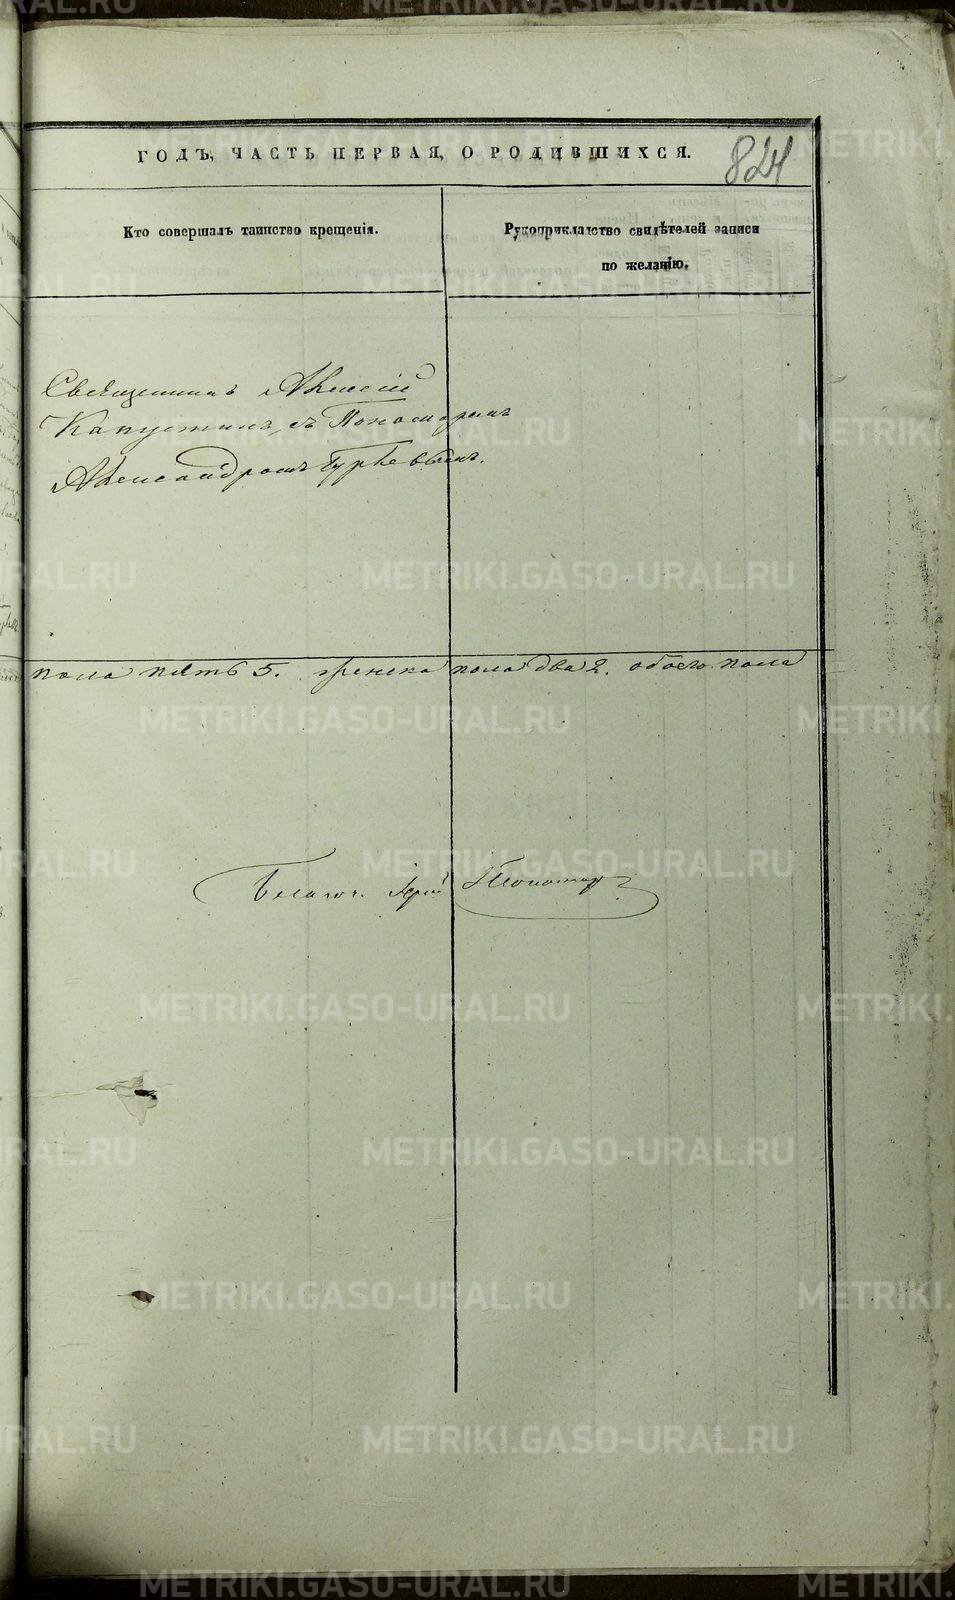 ГОДЪ, ЧАСТЬ ПЕРВАЯ, О РОДИВШИХСЯ.
824
Кто совершалъ таинство крещенія.
Рукоприкладство свидѣтелей записи
по желанію.
Священникъ Алексій
Капустинъ, съ Пономаремъ
Александромъ Гурьевымъ.
пола пять 5. женска пола два 2. обоего пола
Благоч. Іерей Пономар
METRIKI.GASO-URAL.RU